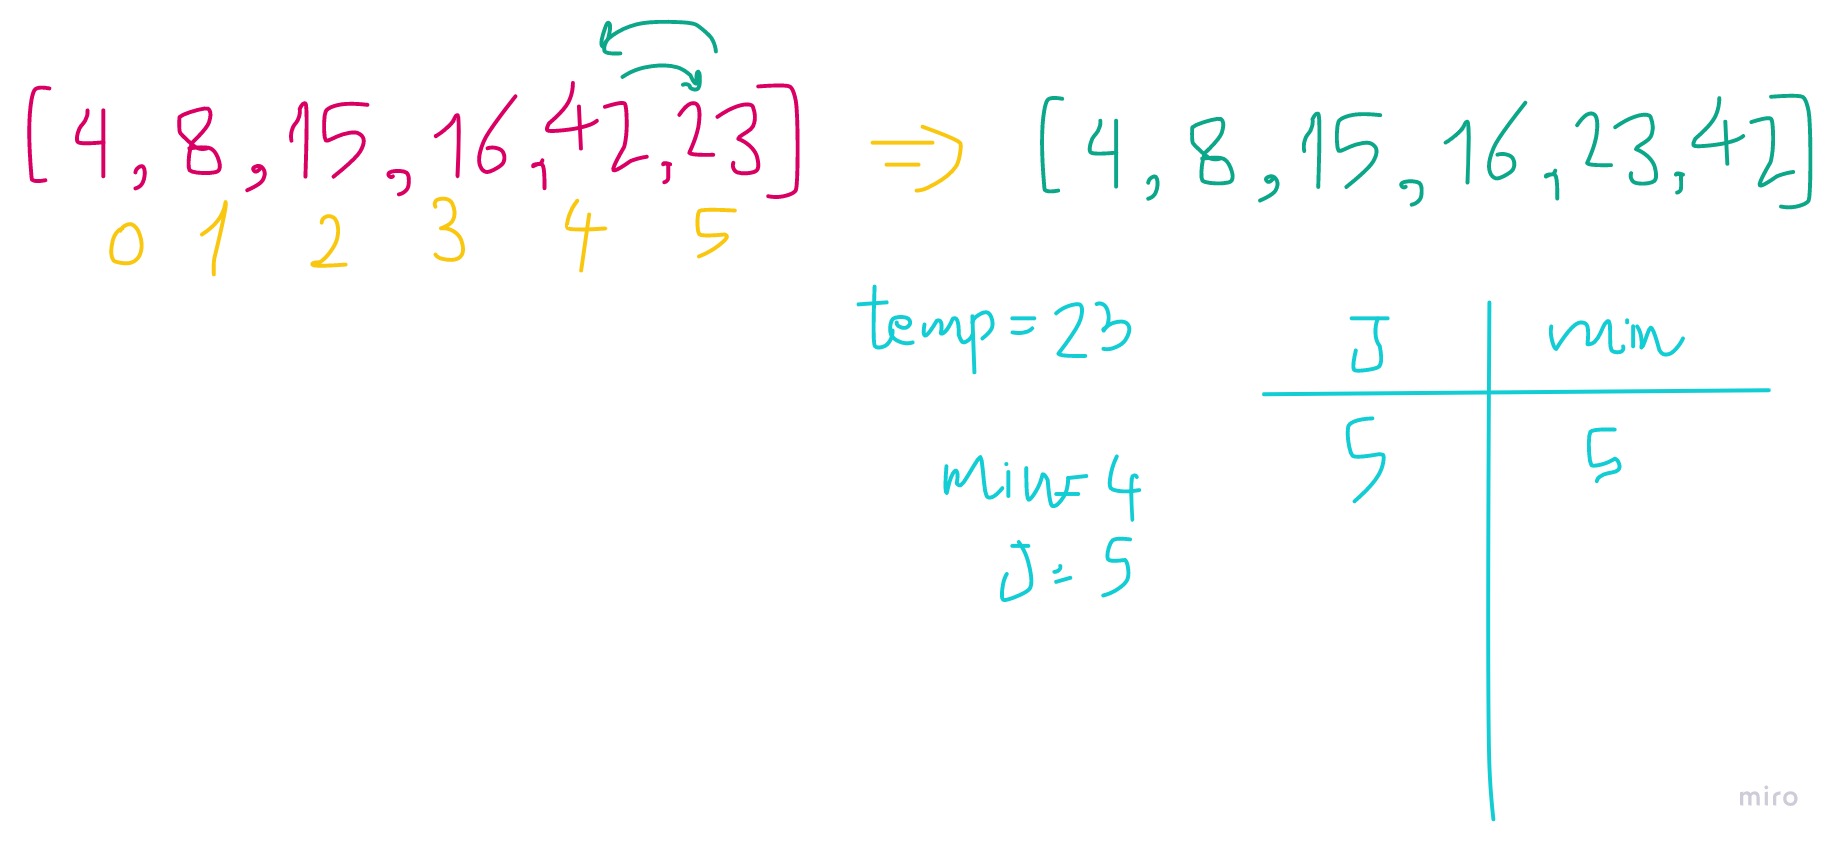 [4, 8, 15, 16, 42, 23] ⇒ [4, 8, 15, 16, 23, 42]
0 1 2 3 4 5
temp = 23
J min
5 5
min = 4
J = 5
miro